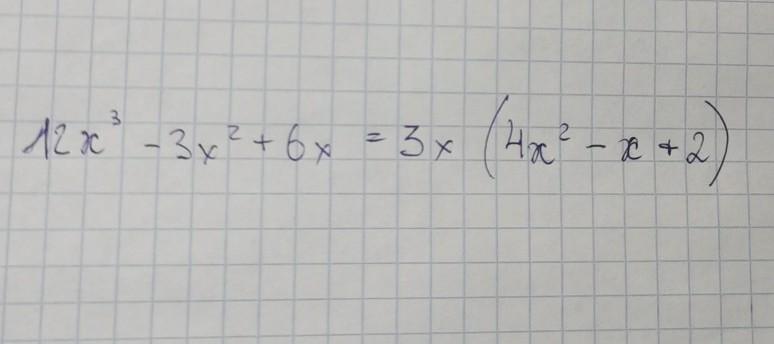 12x³ - 3x² + 6x = 3x (4x² - x + 2)